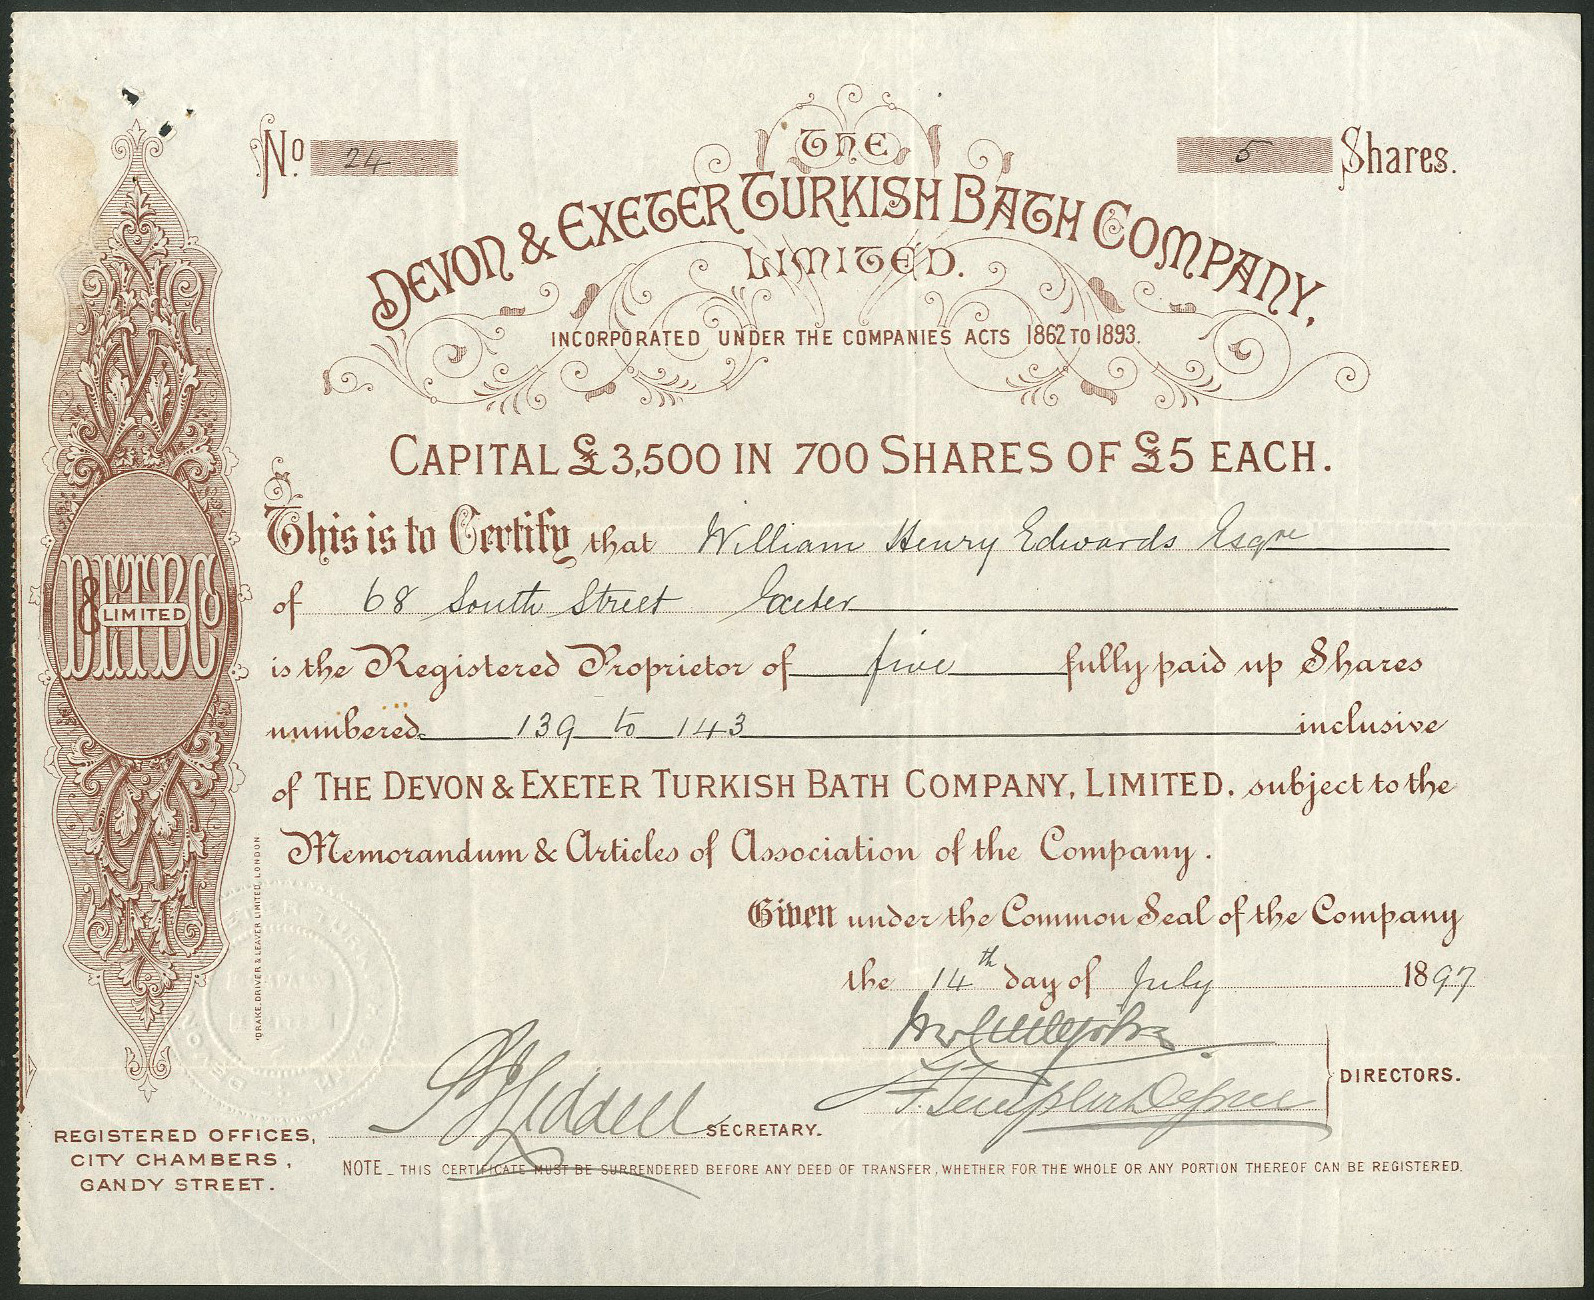 No. 24
5 Shares.
THE
DEVON & EXETER TURKISH BATH COMPANY,
LIMITED.
INCORPORATED UNDER THE COMPANIES ACTS 1862 TO 1893.
CAPITAL £3,500 IN 700 SHARES OF £5 EACH.
This is to Certify that William Henry Edwards Esqre
of 68 South Street Exeter
is the Registered Proprietor of five fully paid up Shares
numbered 139 to 143 inclusive
of THE DEVON & EXETER TURKISH BATH COMPANY, LIMITED. subject to the
Memorandum & Articles of Association of the Company.
Given under the Common Seal of the Company
the 14th day of July 1897
DIRECTORS.
Liddell SECRETARY.
REGISTERED OFFICES,
CITY CHAMBERS,
GANDY STREET.
NOTE_ THIS CERTIFICATE MUST BE SURRENDERED BEFORE ANY DEED OF TRANSFER, WHETHER FOR THE WHOLE OR ANY PORTION THEREOF CAN BE REGISTERED.
D&ETBCo
LIMITED
DRAKE, DRIVER & LEAVER LIMITED, LONDON